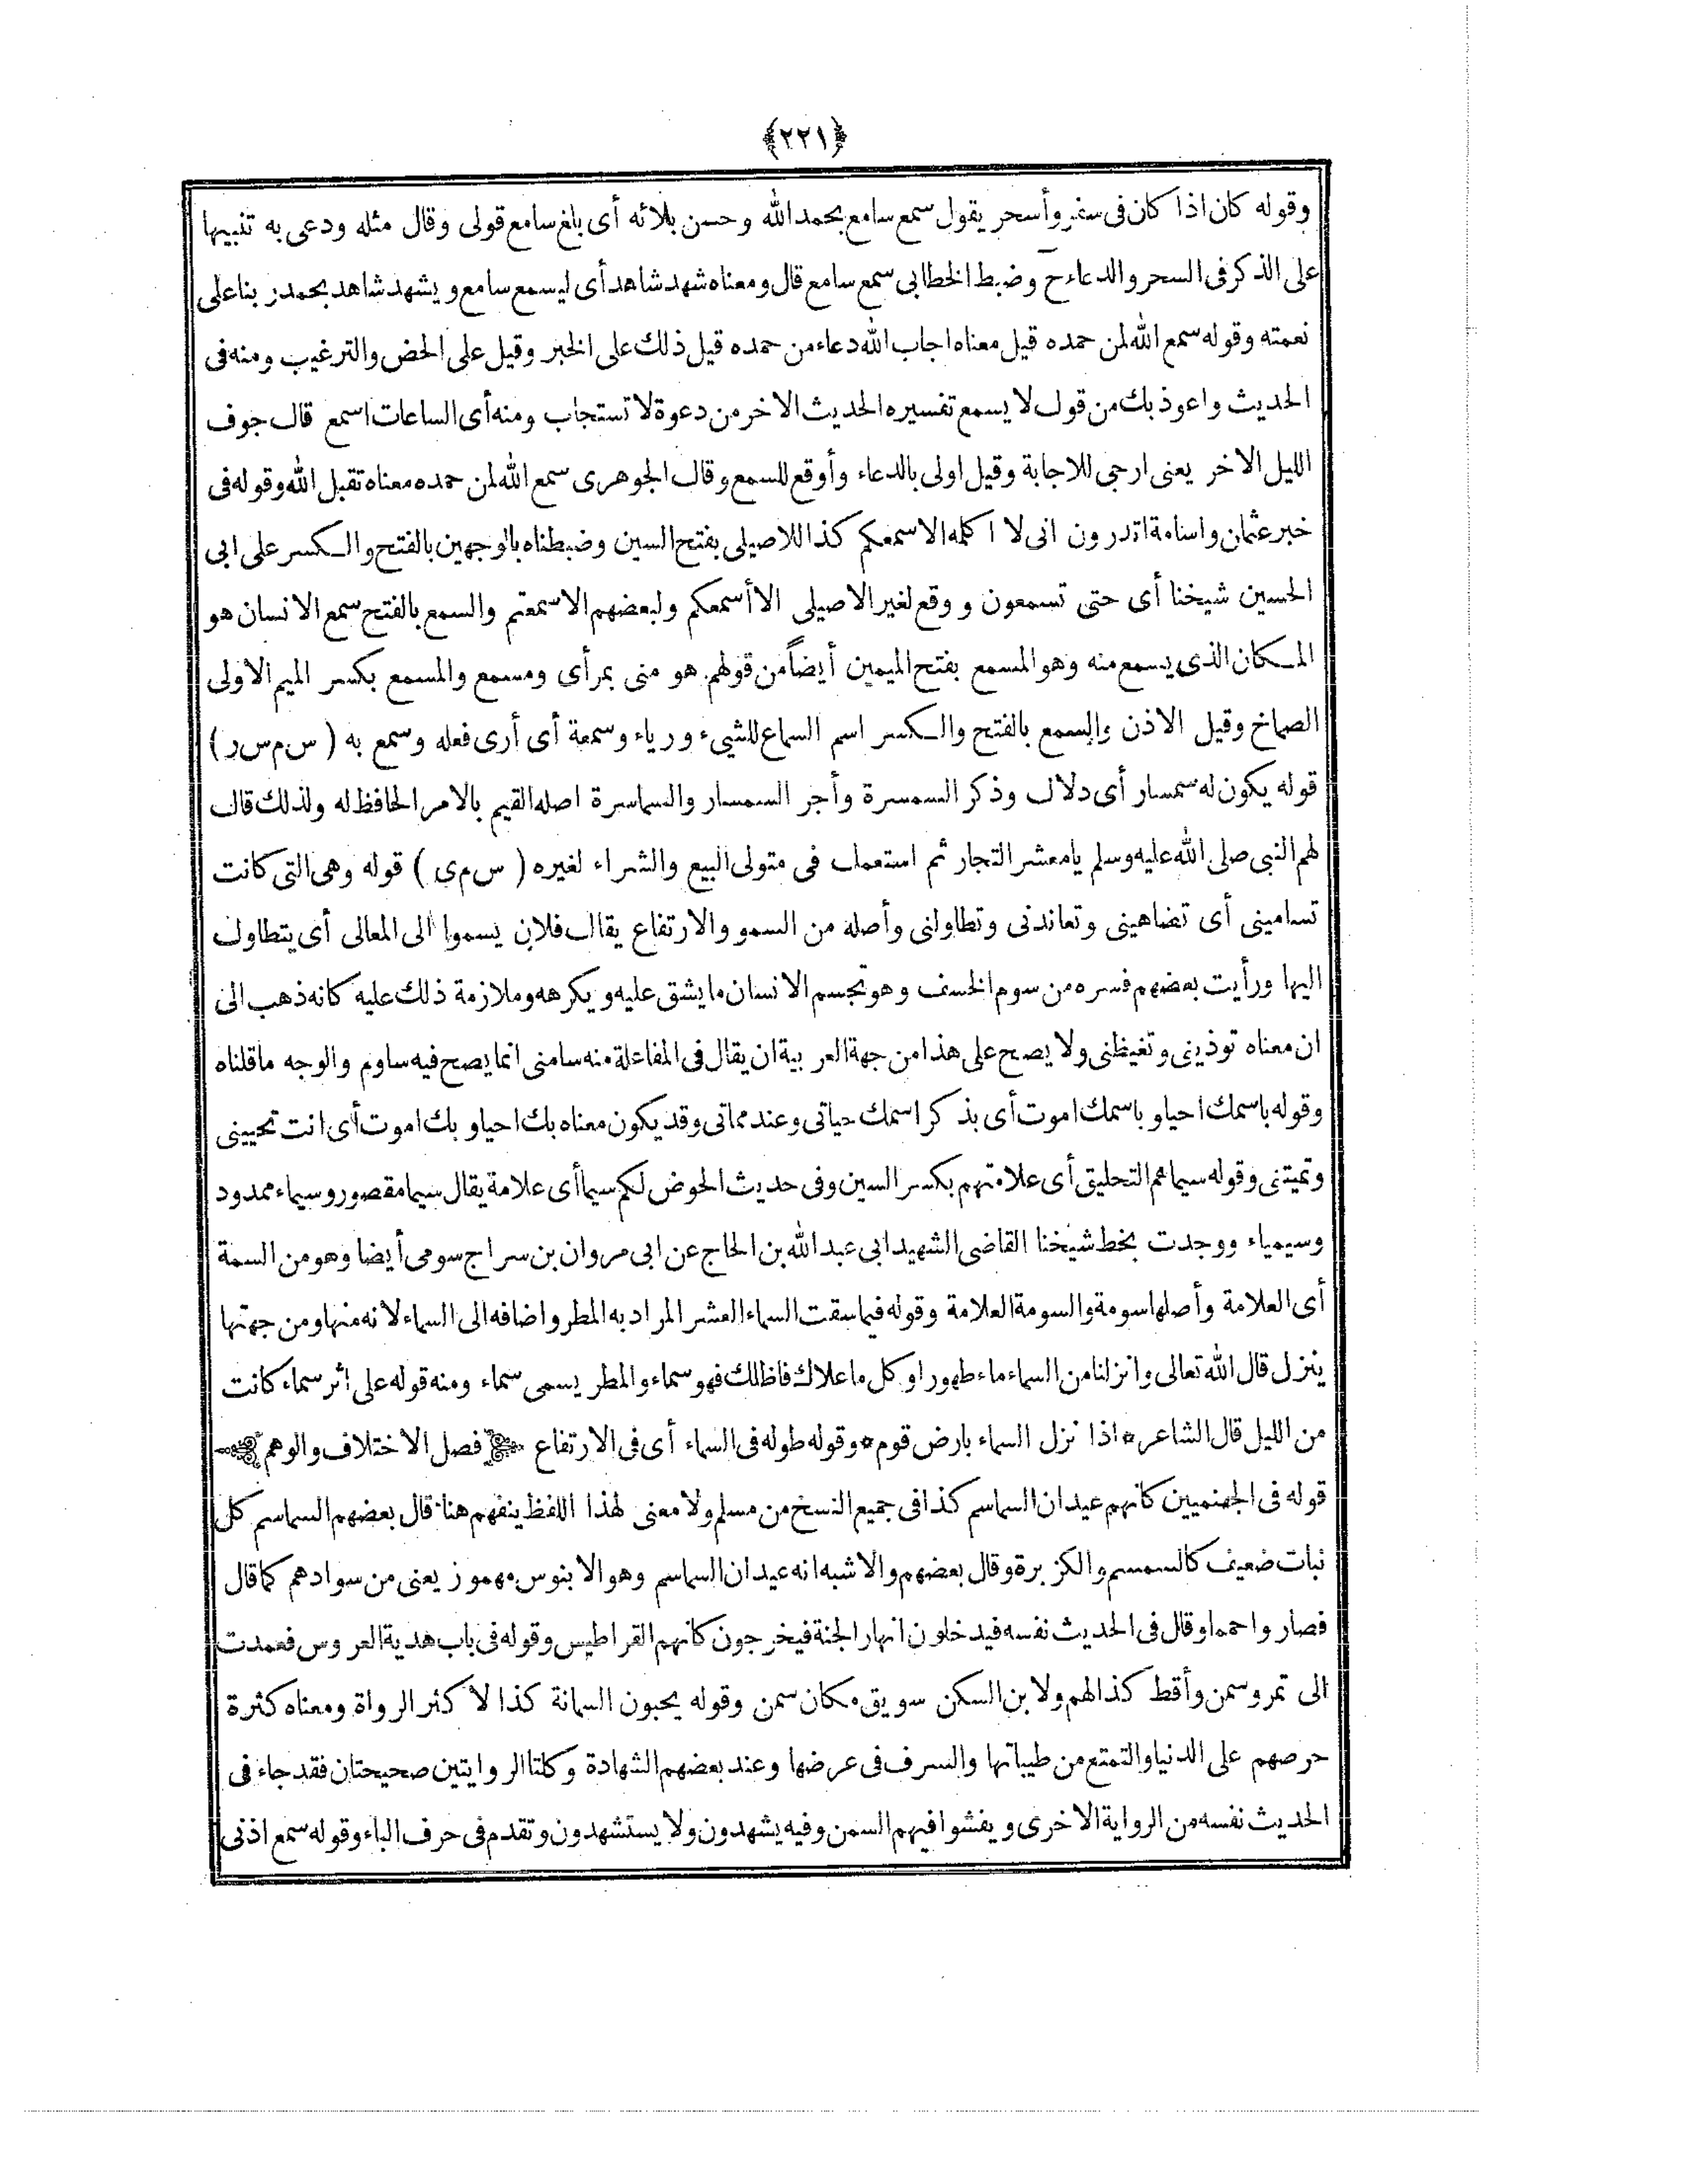 ﴿٢٢١﴾
وقوله كان اذا كان فى سفر وأسحر يقول سمع سامع بحمد الله وحسن بلائه أى بلغ سامع قولى وقال مثله ودعى به تنبيها
على الذكر فى السحر والدعاءح وضبط الخطابى سمع سامع قال ومعناه شهد شاهد أى ليسمع سامع ويشهد شاهد بحمدر بناعلى
نعمته وقوله سمع الله لمن حمده قيل معناه اجاب الله دعاء من حمده قيل ذلك على الخبر وقيل على الحض والترغيب ومنه فى
الحديث واعوذ بك من قول لا يسمع تفسيره الحديث الاخر من دعوة لا تستجاب ومنه أى الساعات اسمع قال جوف
الليل الاخر يعنى ارجى للاجابة وقيل اولى بالدعاء وأوقع للسمع وقال الجوهرى سمع الله لمن حمده معناه تقبل الله وقوله فى
خبر عثمان واسامة اتدرون انى لا اكلمه الا سمعكم كذا للاصيلى بفتح السين وضبطناه بالوجهين بالفتح والكسر على ابى
الحسين شيخنا أى حتى تسمعون ووقع لغير الاصيلى الا أسمعكم ولبعضهم الا سمعتم والسمع بالفتح سمع الانسان هو
المكان الذى يسمع منه وهو المسمع بفتح الميمين أيضاً من قولهم هو منى بمرأى ومسمع والمسمع بكسر الميم الاولى
الصماخ وقيل الاذن والسمع بالفتح والكسر اسم السماع للشيء ورياء وسمعة أى أرى فعله وسمع به ( س م س ر )
قوله يكون له سمسار أى دلال وذكر السمسرة وأجر السمسار والسماسرة اصله القيم بالامر الحافظ له ولذلك قال
لهم النبى صلى الله عليه وسلم يا معشر التجار ثم استعمل فى متولى البيع والشراء لغيره ( س م ى ) قوله وهى التى كانت
تسامينى أى تضاهينى وتعاندنى وتطاولنى وأصله من السمو والارتفاع يقال فلان يسموا الى المعالى أى يتطاول
اليها ورأيت بعضهم فسره من سوم الخسف وهو تجسم الانسان ما يشق عليه ويكرهه وملازمة ذلك عليه كانه ذهب الى
ان معناه توذينى وتغيظنى ولا يصح على هذا من جهة العربية ان يقال فى المفاعلة منه سامنى انما يصح فيه ساوم والوجه ما قلناه
وقوله باسمك احيا وباسمك اموت أى بذكر اسمك حياتى وعند مماتى وقد يكون معناه بك احيا وبك اموت أى انت تحيينى
وتميتنى وقوله سيماهم التحليق أى علامتهم بكسر السين وفى حديث الحوض لكم سيما أى علامة يقال سيما مقصور وسيماء ممدود
وسيمياء ووجدت بخط شيخنا القاضى الشهيد ابى عبد الله بن الحاج عن ابى مروان بن سراج سومى أيضا وهو من السمة
أى العلامة وأصلها سومة والسومة العلامة وقوله فيما سقت السماء العشر المراد به المطر واضافه الى السماء لانه منها ومن جهتها
ينزل قال الله تعالى وانزلنا من السماء ماء طهورا وكل ما علاك فاظلك فهو سماء والمطر يسمى سماء ومنه قوله على اثر سماء كانت
من الليل قال الشاعر * اذا نزل السماء بارض قوم * وقوله طوله فى السماء أى فى الارتفاع فصل الاختلاف والوهم
قوله فى الجهنميين كانهم عيدان السماسم كذا فى جميع النسخ من مسلم ولا معنى لهذا اللفظ ينفهم هنا قال بعضهم السماسم كل
نبات ضعيف كالسمسم والكزبرة وقال بعضهم والاشبه انه عيدان الساسم وهو الابنوس مهموز يعنى من سوادهم كما قال
فصاروا حمما وقال فى الحديث نفسه فيدخلون انهار الجنة فيخرجون كانهم القراطيس وقوله فى باب هدية العروس فعمدت
الى تمر وسمن وأقط كذا لهم ولابن السكن سويق مكان سمن وقوله يحبون السمانة كذا لاكثر الرواة ومعناه كثرة
حرصهم على الدنيا والتمتع من طيباتها والسرف فى عرضها وعند بعضهم الشهادة وكلتا الروايتين صحيحتان فقد جاء فى
الحديث نفسه من الرواية الاخرى ويفشوا فيهم السمن وفيه يشهدون ولا يستشهدون وتقدم فى حرف الباء وقوله سمع اذنى